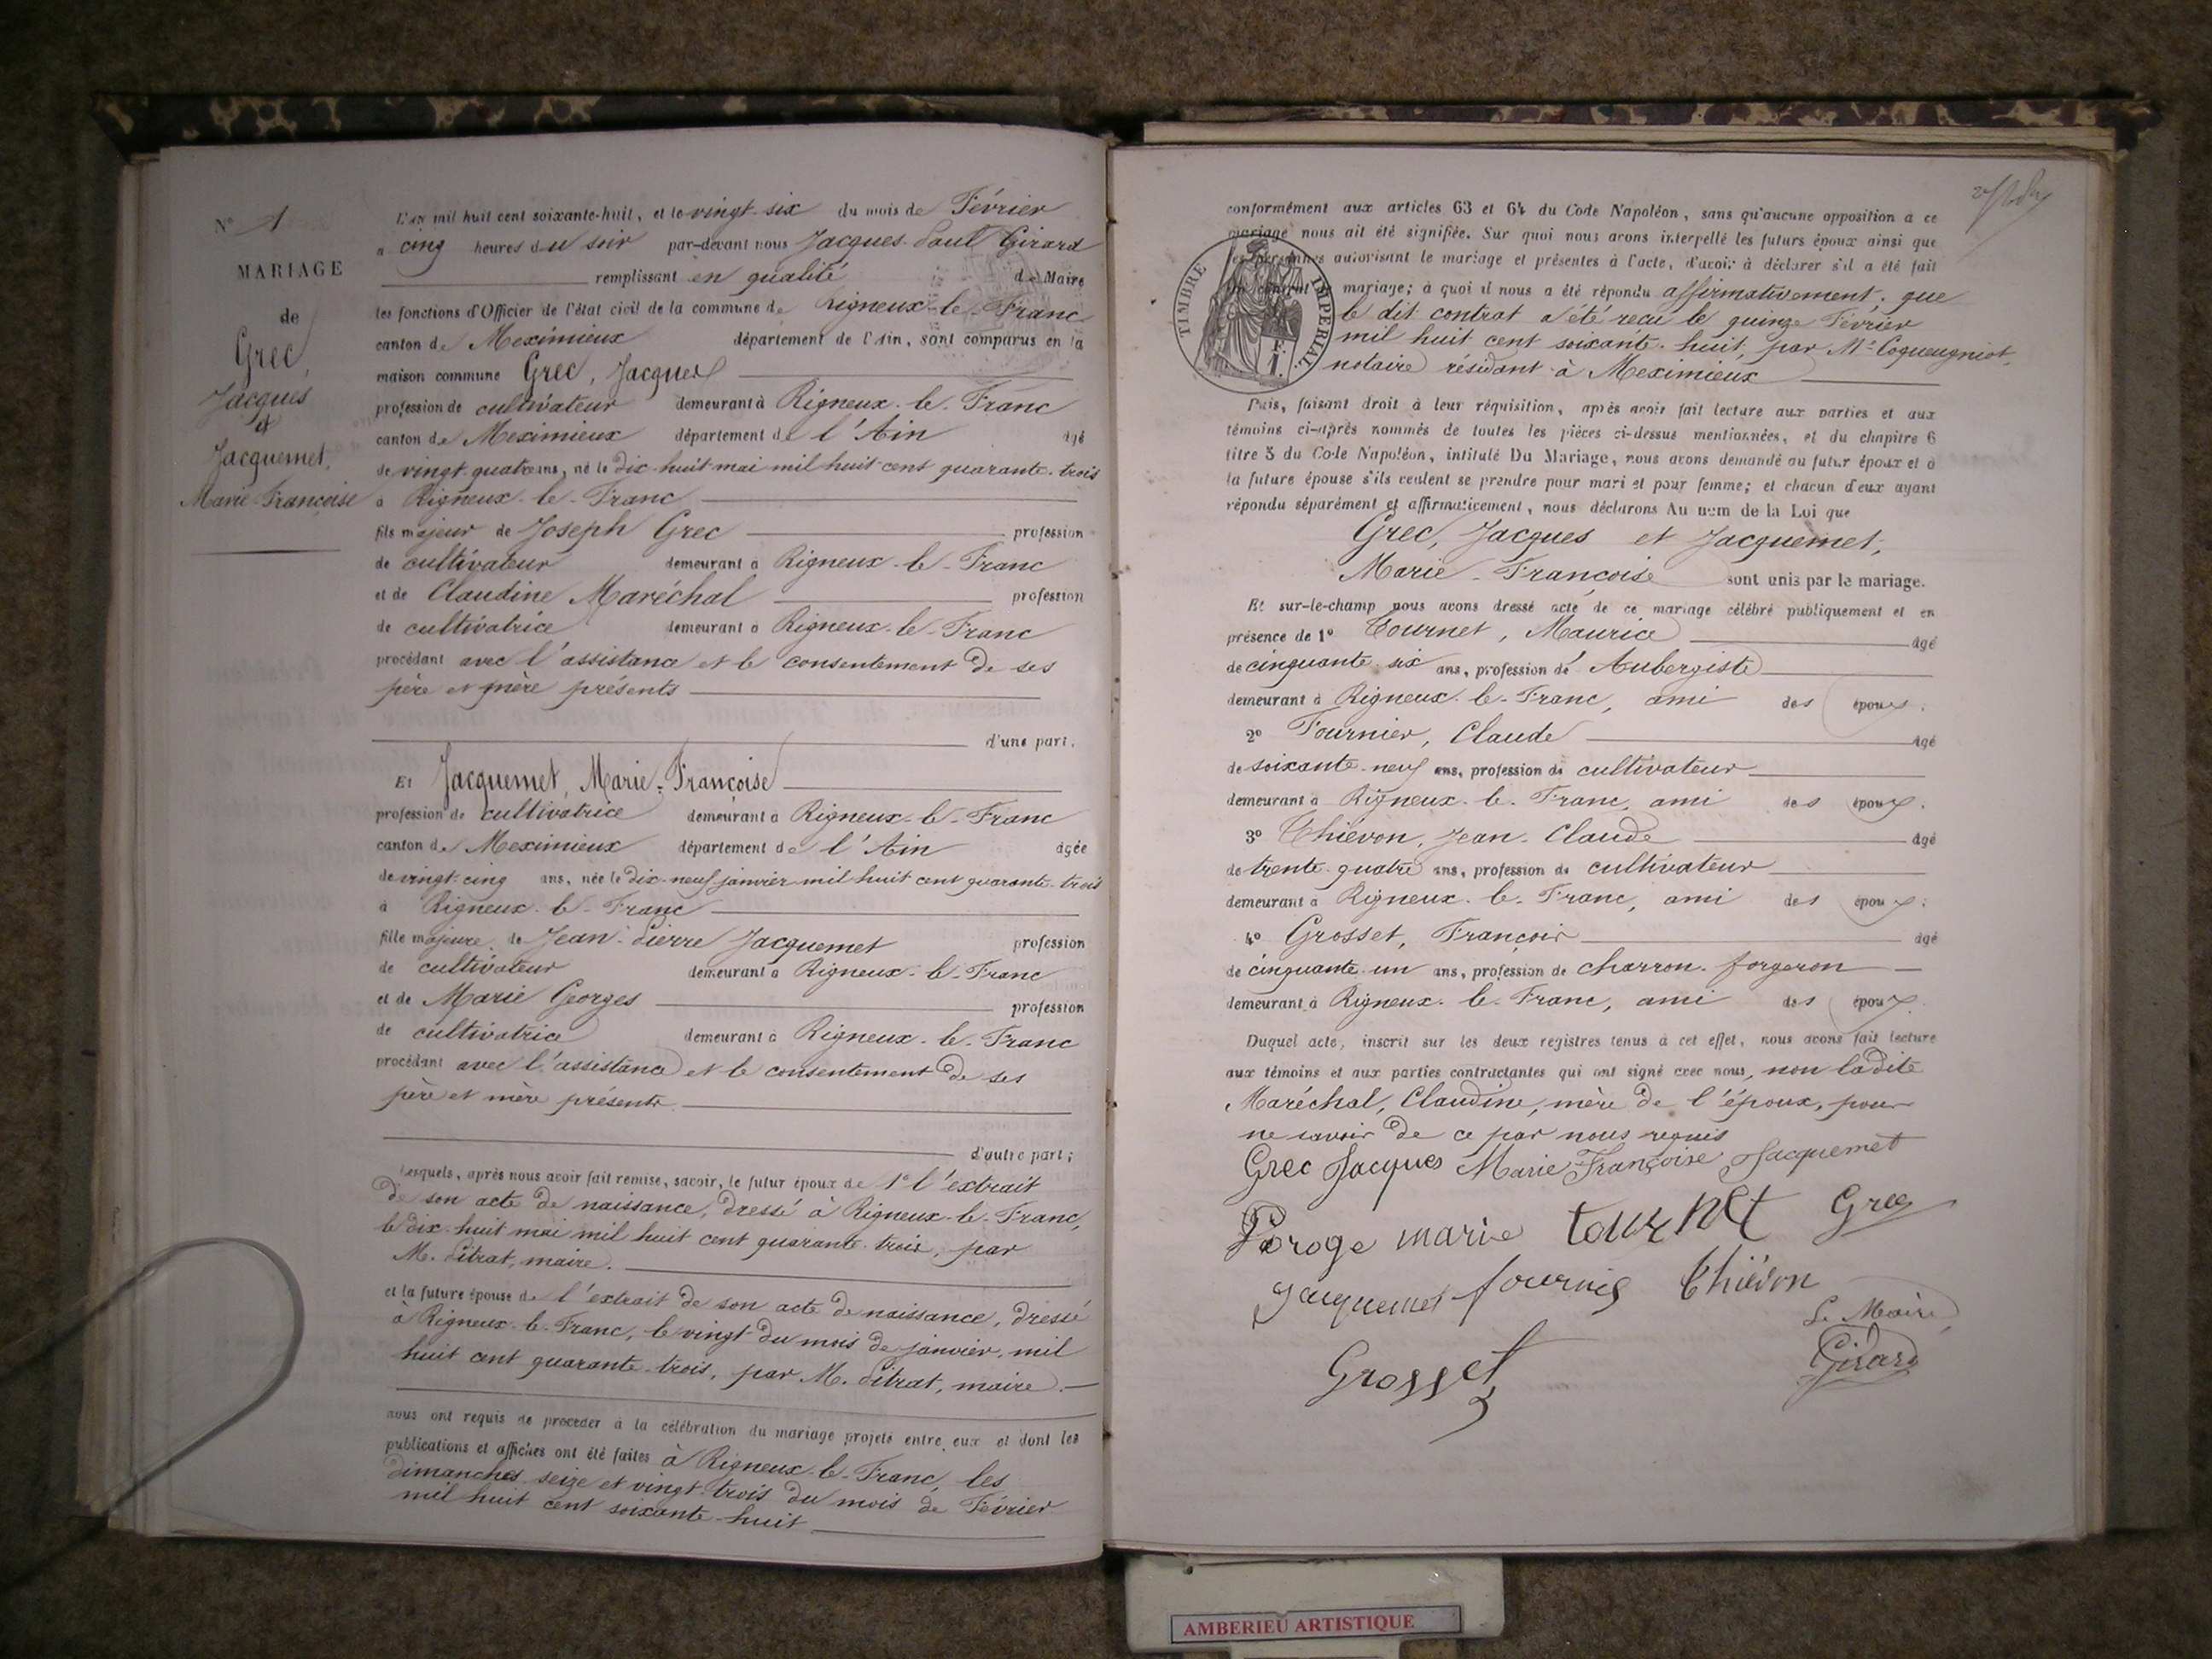 N° 1
MARIAGE
de
Grec,
Jacques
et
Jacquemet,
Marie-Françoise
L'an mil huit cent soixante-huit, et le vingt-six du mois de Février
à cinq heures du soir par-devant nous Jacques-Paul Girard
remplissant en qualité de Maire
les fonctions d'Officier de l'état civil de la commune de Rigneux-le-Franc
canton de Meximieux département de l'Ain, sont comparus en la
maison commune Grec, Jacques
profession de cultivateur demeurant à Rigneux-le-Franc
canton de Meximieux département de l'Ain âgé
de vingt-quatre ans, né le dix-huit mai mil huit cent quarante-trois
à Rigneux-le-Franc
fils majeur de Joseph Grec profession
de cultivateur demeurant à Rigneux-le-Franc
et de Claudine Maréchal profession
de cultivatrice demeurant à Rigneux-le-Franc
procédant avec l'assistance et le consentement de ses
père et mère présents
d'une part.
Et Jacquemet, Marie-Françoise
profession de cultivatrice demeurant à Rigneux-le-Franc
canton de Meximieux département de l'Ain âgée
de vingt-cinq ans, née le dix-neuf janvier mil huit cent quarante-trois
à Rigneux-le-Franc
fille majeure de Jean-Pierre Jacquemet profession
de cultivateur demeurant à Rigneux-le-Franc
et de Marie Georges profession
de cultivatrice demeurant à Rigneux-le-Franc
procédant avec l'assistance et le consentement de ses
père et mère présents
d'autre part;
Lesquels, après nous avoir fait remise, savoir, le futur époux de 1° l'extrait
de son acte de naissance, dressé à Rigneux-le-Franc,
le dix-huit mai mil huit cent quarante-trois, par
M. Pitrat, maire.
et la future épouse de l'extrait de son acte de naissance, dressé
à Rigneux-le-Franc, le vingt du mois de janvier, mil
huit cent quarante-trois, par M. Pitrat, maire.
nous ont requis de procéder à la célébration du mariage projeté entre eux et dont les
publications et affiches ont été faites à Rigneux-le-Franc, les
dimanches seize et vingt-trois du mois de Février
mil huit cent soixante-huit
conformément aux articles 63 et 64 du Code Napoléon, sans qu'aucune opposition à ce
mariage nous ait été signifiée. Sur quoi nous avons interpellé les futurs époux ainsi que
les personnes autorisant le mariage et présentes à l'acte, d'avoir à déclarer s'il a été fait
un contrat de mariage; à quoi il nous a été répondu affirmativement; que
le dit contrat a été reçu le quinze Février
mil huit cent soixante-huit, par Me Coqueugniot,
notaire résidant à Meximieux
TIMBRE IMPERIAL
Puis, faisant droit à leur réquisition, après avoir fait lecture aux parties et aux
témoins ci-après nommés de toutes les pièces ci-dessus mentionnées, et du chapitre 6
titre 5 du Code Napoléon, intitulé Du Mariage, nous avons demandé au futur époux et à
la future épouse s'ils veulent se prendre pour mari et pour femme; et chacun d'eux ayant
répondu séparément et affirmativement, nous déclarons Au nom de la Loi que
Grec, Jacques et Jacquemet,
Marie-Françoise sont unis par le mariage.
Et sur-le-champ nous avons dressé acte de ce mariage célébré publiquement et en
présence de 1° Tournet, Maurice âgé
de cinquante-six ans, profession de Aubergiste
demeurant à Rigneux-le-Franc, ami des époux.
2° Fournier, Claude âgé
de soixante-neuf ans, profession de cultivateur
demeurant à Rigneux-le-Franc, ami des époux.
3° Thiévon, Jean-Claude âgé
de trente-quatre ans, profession de cultivateur
demeurant à Rigneux-le-Franc, ami des époux;
4° Grosset, François âgé
de cinquante-un ans, profession de charron-forgeron
demeurant à Rigneux-le-Franc, ami des époux.
Duquel acte, inscrit sur les deux registres tenus à cet effet, nous avons fait lecture
aux témoins et aux parties contractantes qui ont signé avec nous, non ladite
Maréchal, Claudine, mère de l'époux, pour
ne savoir de ce par nous requis
Grec Jacques Marie Françoise Jacquemet
marie tournet Grec
Jacquemet fournié Thiévon
Le Maire,
Grosset Girard
AMBERIEU ARTISTIQUE